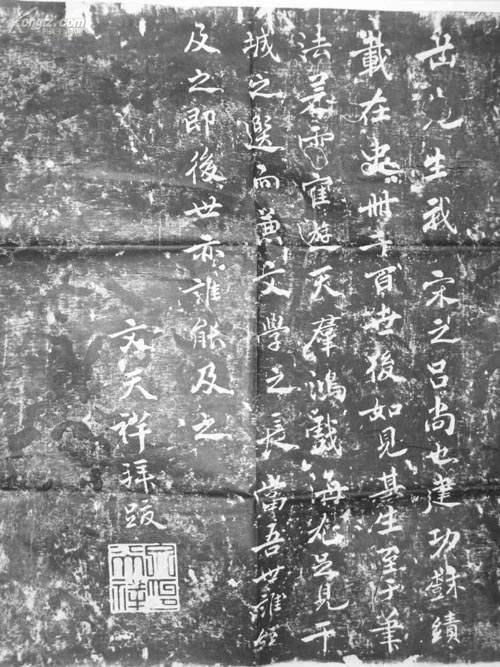 岳先生我 宋之吕尚也建功樹績
載在史冊千百世後如見其生至于筆
法若雲隺遊天羣鴻戲海尤足見干
城之選而兼文學之長當吾世誰能
及之即後世亦誰能及之
文天祥拜跋